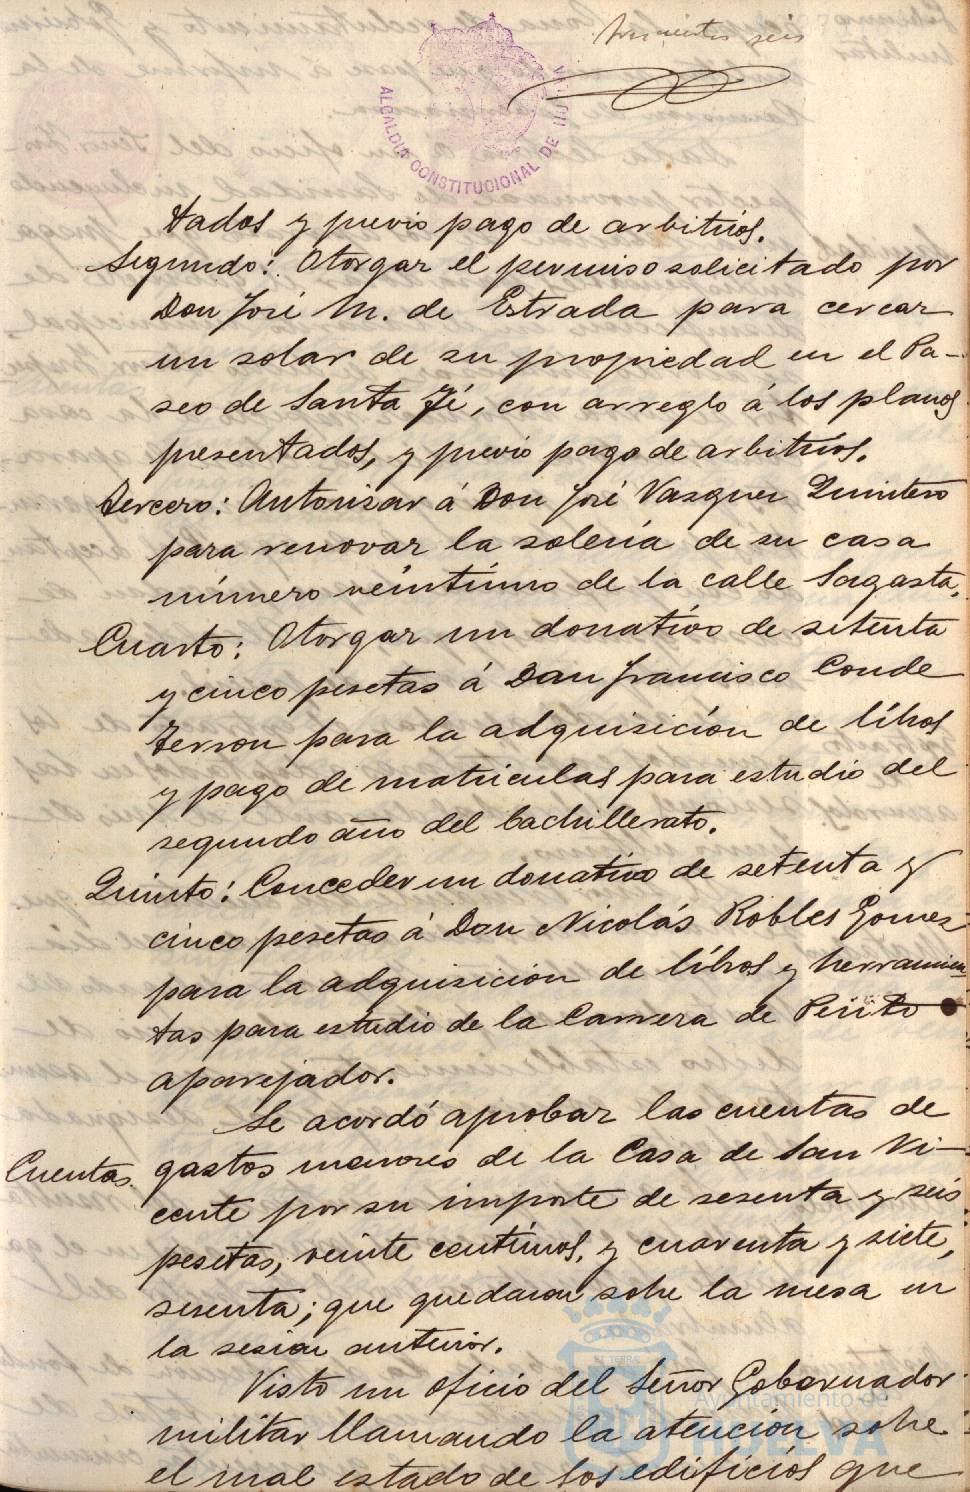 seis
ALCALDIA CONSTITUCIONAL DE
tados y previo pago de arbitrios.
Segundo: Otorgar el permiso solicitado por
Don José M. de Estrada para cercar
un solar de su propiedad en el Pa-
seo de Santa Fé, con arreglo á los planos
presentados, y previo pago de arbitrios.
Tercero: Autorizar á Don José Vazquez Quintero
para renovar la soleria de su casa
número veintiuno de la calle Sagasta.
Cuarto: Otorgar un donativo de setenta
y cinco pesetas á Don Francisco Conde
Terron para la adquisición de libros
y pago de matriculas para estudio del
segundo año del bachillerato.
Quinto: Conceder un donativo de setenta y
cinco pesetas á Don Nicolás Robles Gomez
para la adquisicion de libros y herramien-
tas para estudio de la Carrera de Perito
aparejador.
Se acordó aprobar las cuentas de
Cuentas. gastos menores de la Casa de San Vi-
cente por su importe de sesenta y seis
pesetas, veinte centimos, y cuarenta y siete,
sesenta; que quedaron sobre la mesa en
la sesion anterior.
Visto un oficio del Señor Gobernador
militar llamando la atención sobre
el mal estado de los edificios que
Ayuntamiento de
HUELVA